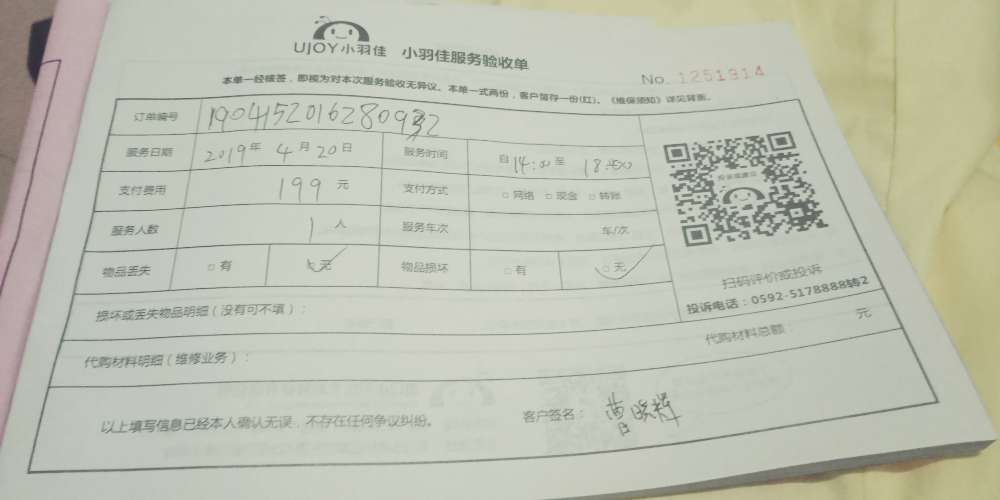 UJOY小羽佳 小羽佳服务验收单
No. 1251914
本单一经核签，即视为对本次服务验收无异议。本单一式两份，客户留存一份(红)。《维保须知》详见背面。
订单编号
服务日期 2019年 4月 20日 服务时间 自14:00至 18:00
支付费用 199 元 支付方式 □ 网络 □ 现金 □ 转账
服务人数 1 人 服务车次 车/次
物品丢失 □ 有 ☑ 无 物品损坏 □ 有 ☑ 无
投诉或建议
扫码评价或投诉
投诉电话：0592-5178888转2
损坏或丢失物品明细（没有可不填）：
代购材料明细（维修业务）： 代购材料总额： 元
以上填写信息已经本人确认无误，不存在任何争议纠纷。 客户签名：